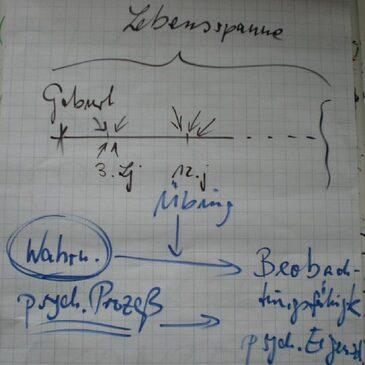 Lebensspanne
Geburt
3. Lj 12. j
Übung
Wahrn.
Beobach-
tungsfähigk
psych. Prozeß
psych.